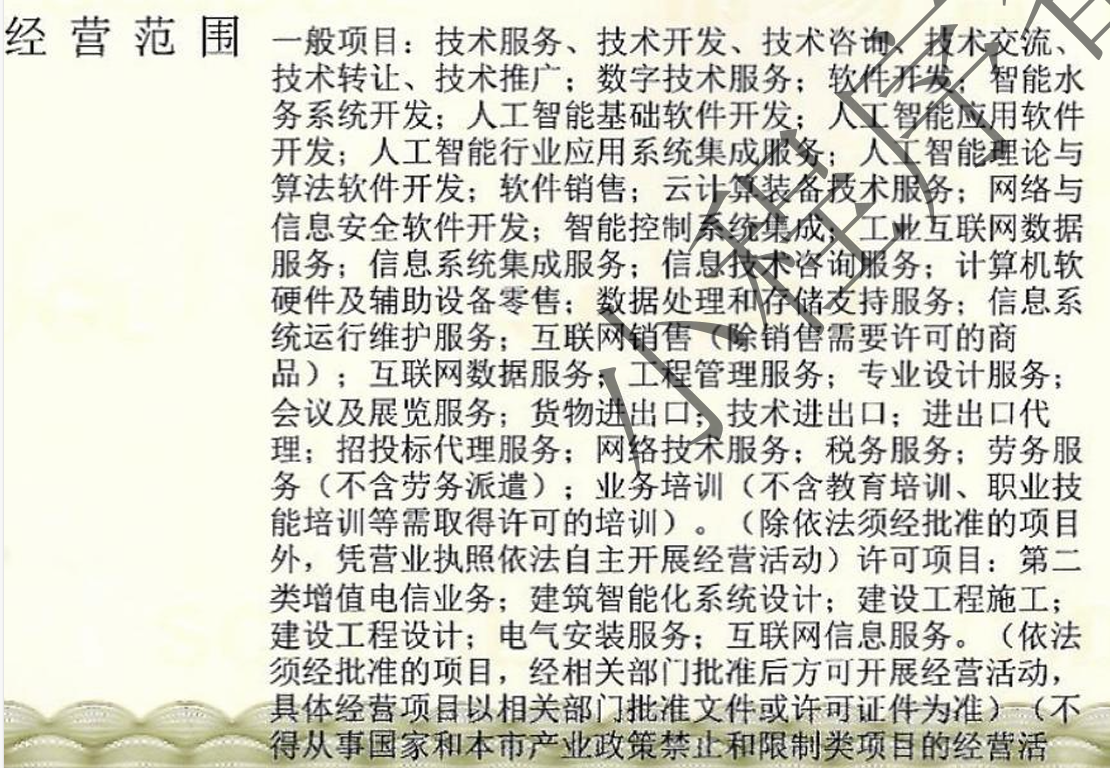 经营范围
一般项目：技术服务、技术开发、技术咨询、技术交流、
技术转让、技术推广；数字技术服务；软件开发；智能水
务系统开发；人工智能基础软件开发；人工智能应用软件
开发；人工智能行业应用系统集成服务；人工智能理论与
算法软件开发；软件销售；云计算装备技术服务；网络与
信息安全软件开发；智能控制系统集成；工业互联网数据
服务；信息系统集成服务；信息技术咨询服务；计算机软
硬件及辅助设备零售；数据处理和存储支持服务；信息系
统运行维护服务；互联网销售（除销售需要许可的商
品）；互联网数据服务；工程管理服务；专业设计服务；
会议及展览服务；货物进出口；技术进出口；进出口代
理；招投标代理服务；网络技术服务；税务服务；劳务服
务（不含劳务派遣）；业务培训（不含教育培训、职业技
能培训等需取得许可的培训）。（除依法须经批准的项目
外，凭营业执照依法自主开展经营活动）许可项目：第二
类增值电信业务；建筑智能化系统设计；建设工程施工；
建设工程设计；电气安装服务；互联网信息服务。（依法
须经批准的项目，经相关部门批准后方可开展经营活动，
具体经营项目以相关部门批准文件或许可证件为准）（不
得从事国家和本市产业政策禁止和限制类项目的经营活
小程序